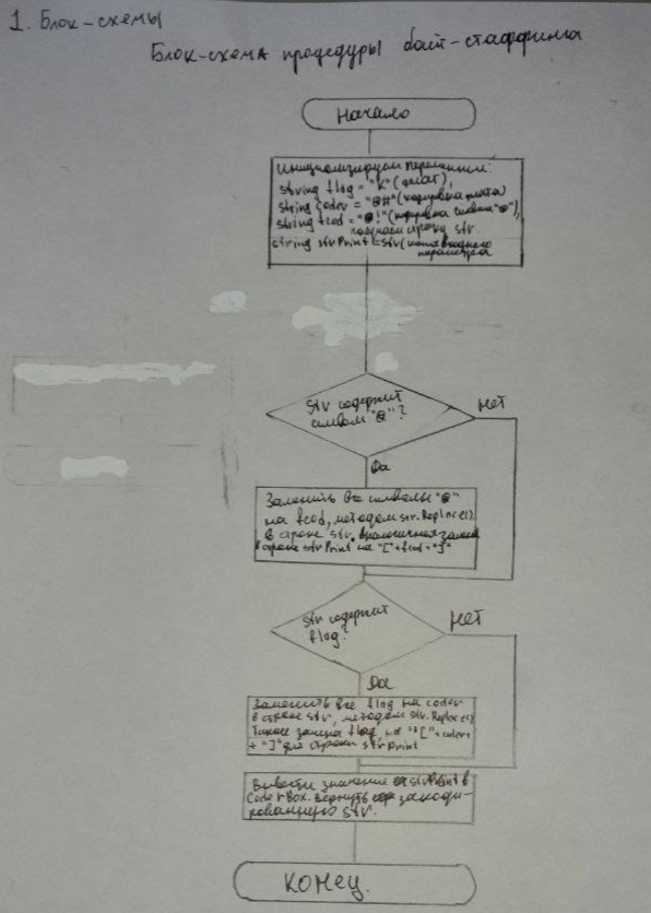 1. Блок-схемы
Блок-схема процедуры байт-стаффинга
Начало
Инициализируем переменные:
string flag = "K" (флаг),
string coder = "@#" (кодировка флага)
string fcod = "@!" (кодировка символа "@"),
получаем строку str.
string strPrint = str (копия входного
параметра
Str содержит
символ "@"?
Нет
Да
Заменить все символы "@"
на fcod, методом str.Replace()
в строке str. Аналогичная замена
в строке strPrint на "["+fcod+"]"
Str содержит
flag?
Нет
Да
Заменить все flag на coder
в строке str, методом str.Replace()
Также замена flag, на "["+coder+
+"]" для строки strPrint
Вывести значение strPrint в
Coder Box. Вернуть закоди-
рованную str.
Конец.